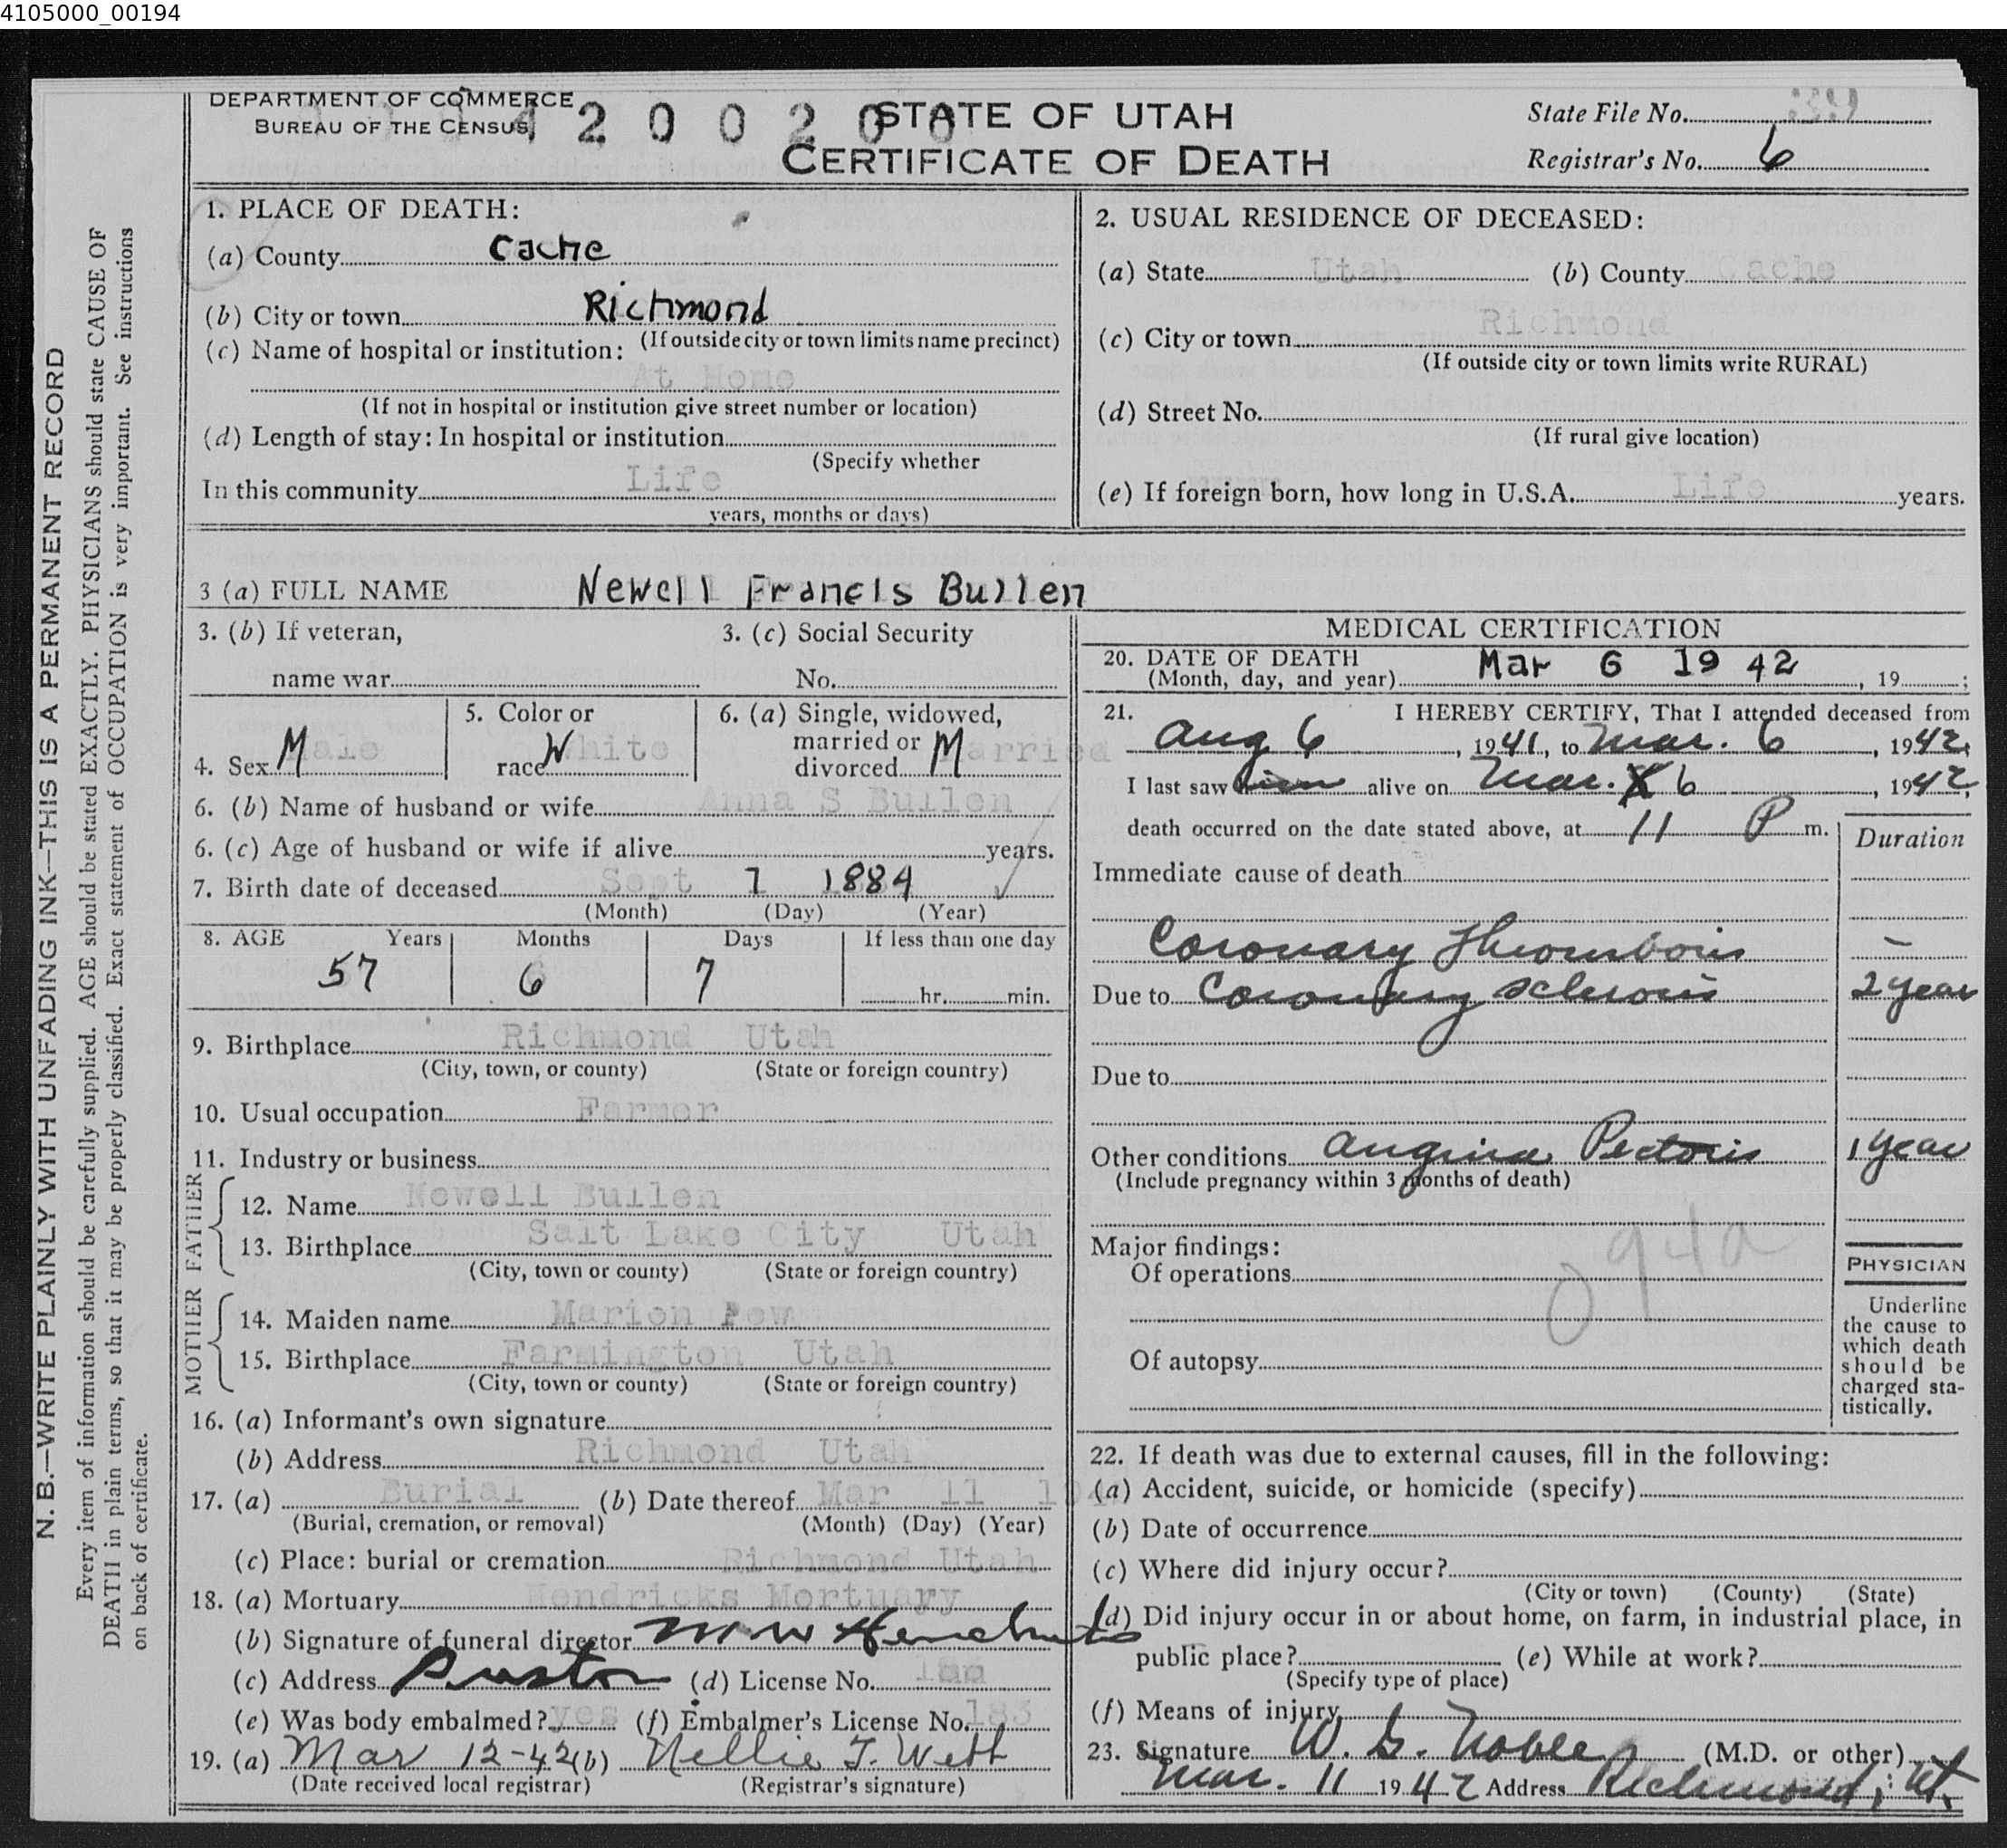 4105000_00194
DEPARTMENT OF COMMERCE
BUREAU OF THE CENSUS
4 2 0 0 2 0 0
STATE OF UTAH
CERTIFICATE OF DEATH
State File No. 39
Registrar's No. 6
N. B.—WRITE PLAINLY WITH UNFADING INK—THIS IS A PERMANENT RECORD
Every item of information should be carefully supplied. AGE should be stated EXACTLY. PHYSICIANS should state CAUSE OF
DEATH in plain terms, so that it may be properly classified. Exact statement of OCCUPATION is very important. See instructions
on back of certificate.
1. PLACE OF DEATH:
(a) County Cache
(b) City or town Richmond
(If outside city or town limits name precinct)
(c) Name of hospital or institution:
At Home
(If not in hospital or institution give street number or location)
(d) Length of stay: In hospital or institution
(Specify whether
In this community Life
years, months or days)
2. USUAL RESIDENCE OF DECEASED:
(a) State Utah (b) County Cache
(c) City or town Richmond
(If outside city or town limits write RURAL)
(d) Street No.
(If rural give location)
(e) If foreign born, how long in U.S.A. Life years.
3 (a) FULL NAME Newell Francis Bullen
3. (b) If veteran,
name war
3. (c) Social Security
No.
4. Sex Male M
5. Color or
race White W
6. (a) Single, widowed,
married or
divorced Married M
6. (b) Name of husband or wife Anna S Bullen
6. (c) Age of husband or wife if alive years.
7. Birth date of deceased Sept 7 1884
(Month) (Day) (Year)
8. AGE Years Months Days If less than one day
57 6 7 hr. min.
9. Birthplace Richmond Utah
(City, town, or county) (State or foreign country)
10. Usual occupation Farmer
11. Industry or business
FATHER
12. Name Newell Bullen
13. Birthplace Salt Lake City Utah
(City, town or county) (State or foreign country)
MOTHER
14. Maiden name Marion Pew
15. Birthplace Farmington Utah
(City, town or county) (State or foreign country)
16. (a) Informant's own signature
(b) Address Richmond Utah
17. (a) Burial (b) Date thereof Mar 11 194
(Burial, cremation, or removal) (Month) (Day) (Year)
(c) Place: burial or cremation Richmond Utah
18. (a) Mortuary Hendricks Mortuary
(b) Signature of funeral director M W Hendricks
(c) Address Preston (d) License No.
(e) Was body embalmed? yes (f) Embalmer's License No. 183
19. (a) Mar 12-42 (b) Nellie T. Webb
(Date received local registrar) (Registrar's signature)
MEDICAL CERTIFICATION
20. DATE OF DEATH
(Month, day, and year) Mar 6 1942, 19 ;
21. I HEREBY CERTIFY, That I attended deceased from
Aug 6, 1941, to Mar. 6, 1942,
I last saw him alive on Mar. 6, 1942,
death occurred on the date stated above, at 11 P m.
Duration
Immediate cause of death
Coronary Thrombosis —
Due to Coronary sclerosis 2 year
Due to
Other conditions Angina Pectoris 1 year
(Include pregnancy within 3 months of death)
094a
Major findings:
Of operations
Of autopsy
PHYSICIAN
Underline
the cause to
which death
should be
charged sta-
tistically.
22. If death was due to external causes, fill in the following:
(a) Accident, suicide, or homicide (specify)
(b) Date of occurrence
(c) Where did injury occur?
(City or town) (County) (State)
(d) Did injury occur in or about home, on farm, in industrial place, in
public place? (e) While at work?
(Specify type of place)
(f) Means of injury
23. Signature W. G. Noble (M.D. or other)
Mar. 11 1942 Address Richmond, Ut.